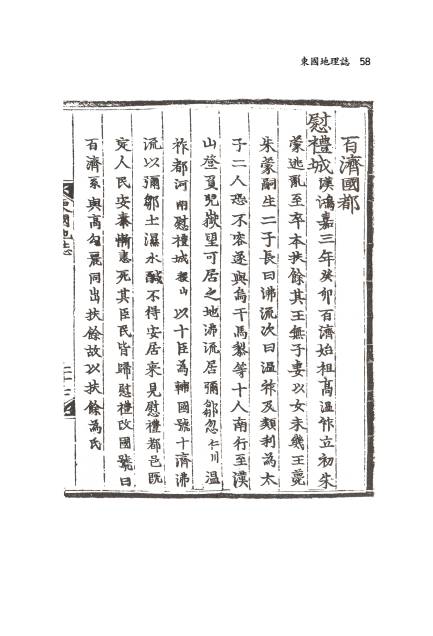 東國地理誌 58
百濟國都
慰禮城 漢鴻嘉三年癸卯百濟始祖高溫祚立初朱
蒙逃亂至卒本扶餘其王無子妻以女未幾王薨
朱蒙嗣生二子長曰沸流次曰溫祚及類利爲太
子二人恐不容遂與烏干馬黎等十人南行至漢
山登負兒嶽望可居之地沸流居彌鄒忽仁川溫
祚都河南慰禮城稷山以十臣爲輔國號十濟沸
流以彌鄒土濕水醎不得安居來見慰禮都邑旣
定人民安泰慚恚死其臣民皆歸慰禮改國號曰
百濟系與高句麗同出扶餘故以扶餘爲氏
東國地誌